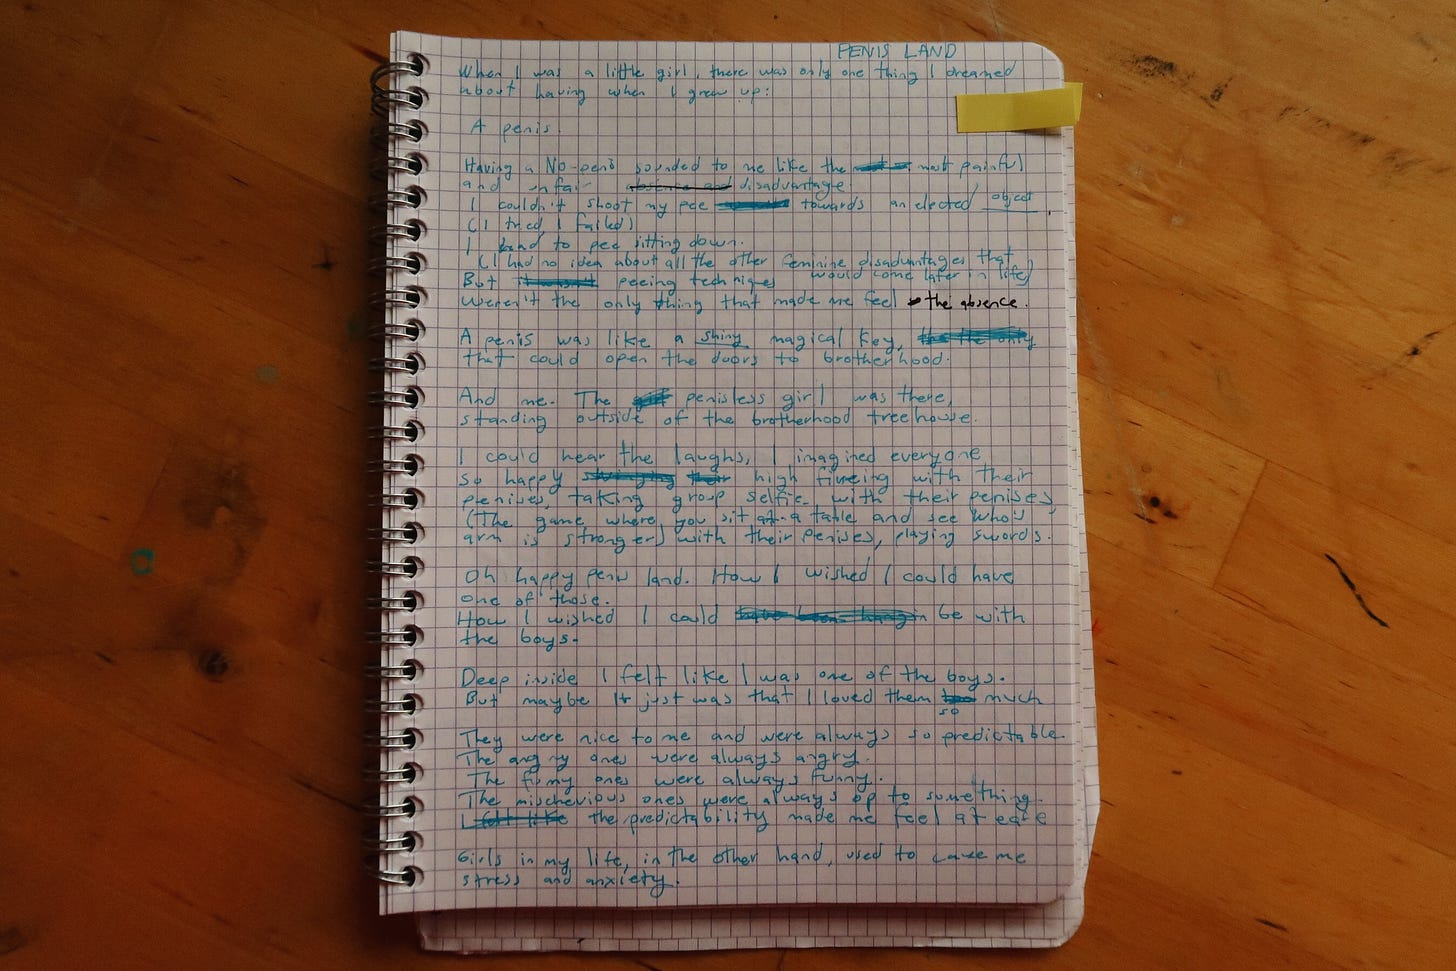 PENIS LAND
When I was a little girl, there was only one thing I dreamed
about having when I grew up:
A penis.
Having a No-penis sounded to me like the most painful
and unfair disadvantage
I couldn't shoot my pee towards an elected object
(I tried I failed)
I had to pee sitting down.
(I had no idea about all the other feminine disadvantages that
would come later in life)
But peeing techniques
weren't the only thing that made me feel the absence.
A penis was like a shiny magical key,
that could open the doors to brotherhood.
And me. The penisless girl was there,
standing outside of the brotherhood treehouse.
I could hear the laughs, I imagined everyone
so happy high fiveing with their
penises, taking group selfies with their penises,
(The game where you sit at a table and see who's
arm is stronger) with their penises, playing swords.
Oh happy penis land. How I wished I could have
one of those.
How I wished I could be with
the boys.
Deep inside I felt like I was one of the boys.
But maybe It just was that I loved them so much
They were nice to me and were always so predictable.
The angry ones were always angry.
The funny ones were always funny.
The mischevious ones were always up to something.
the predictability made me feel at ease
Girls in my life, in the other hand, used to cause me
stress and anxiety.